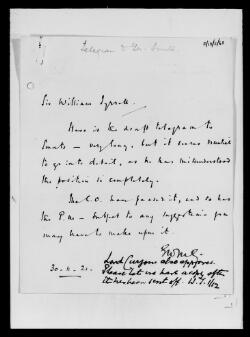 Telegram to Gen. Smuts.
Sir William Tyrrell.
Here is the draft telegram to
Smuts – very long, but it seems essential
to go into detail, as he has misunderstood
the position so completely.
The C.O. have passed it, and so has
the P.M. – subject to any suggestions you
may have to make upon it.
30.11.20.
Lord Curzon also approves.
Please let us have a copy after
it has been sent off. W.T. 1/12